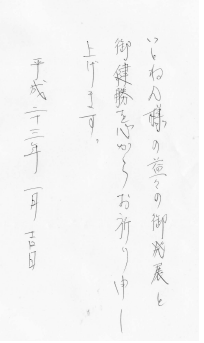 いしねん様の益々の御発展と
御健勝を心からお祈り申し
上げます。
平成二十三年一月吉日